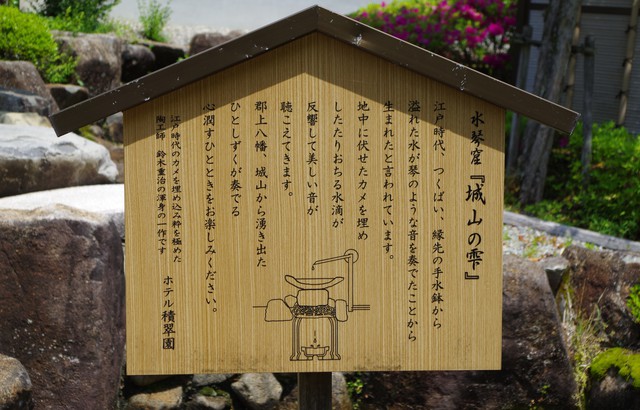 水琴窟『城山の雫』
江戸時代、つくばい、縁先の手水鉢から
溢れた水が琴のような音を奏でたことから
生まれたと言われています。
地中に伏せたカメを埋め
したたりおちる水滴が
反響して美しい音が
聴こえてきます。
郡上八幡、城山から湧き出た
ひとしずくが奏でる
心潤すひとときをお楽しみください。
江戸時代のカメを埋め込み粋を極めた
陶工師　鈴木重治の渾身の一作です
ホテル積翠園